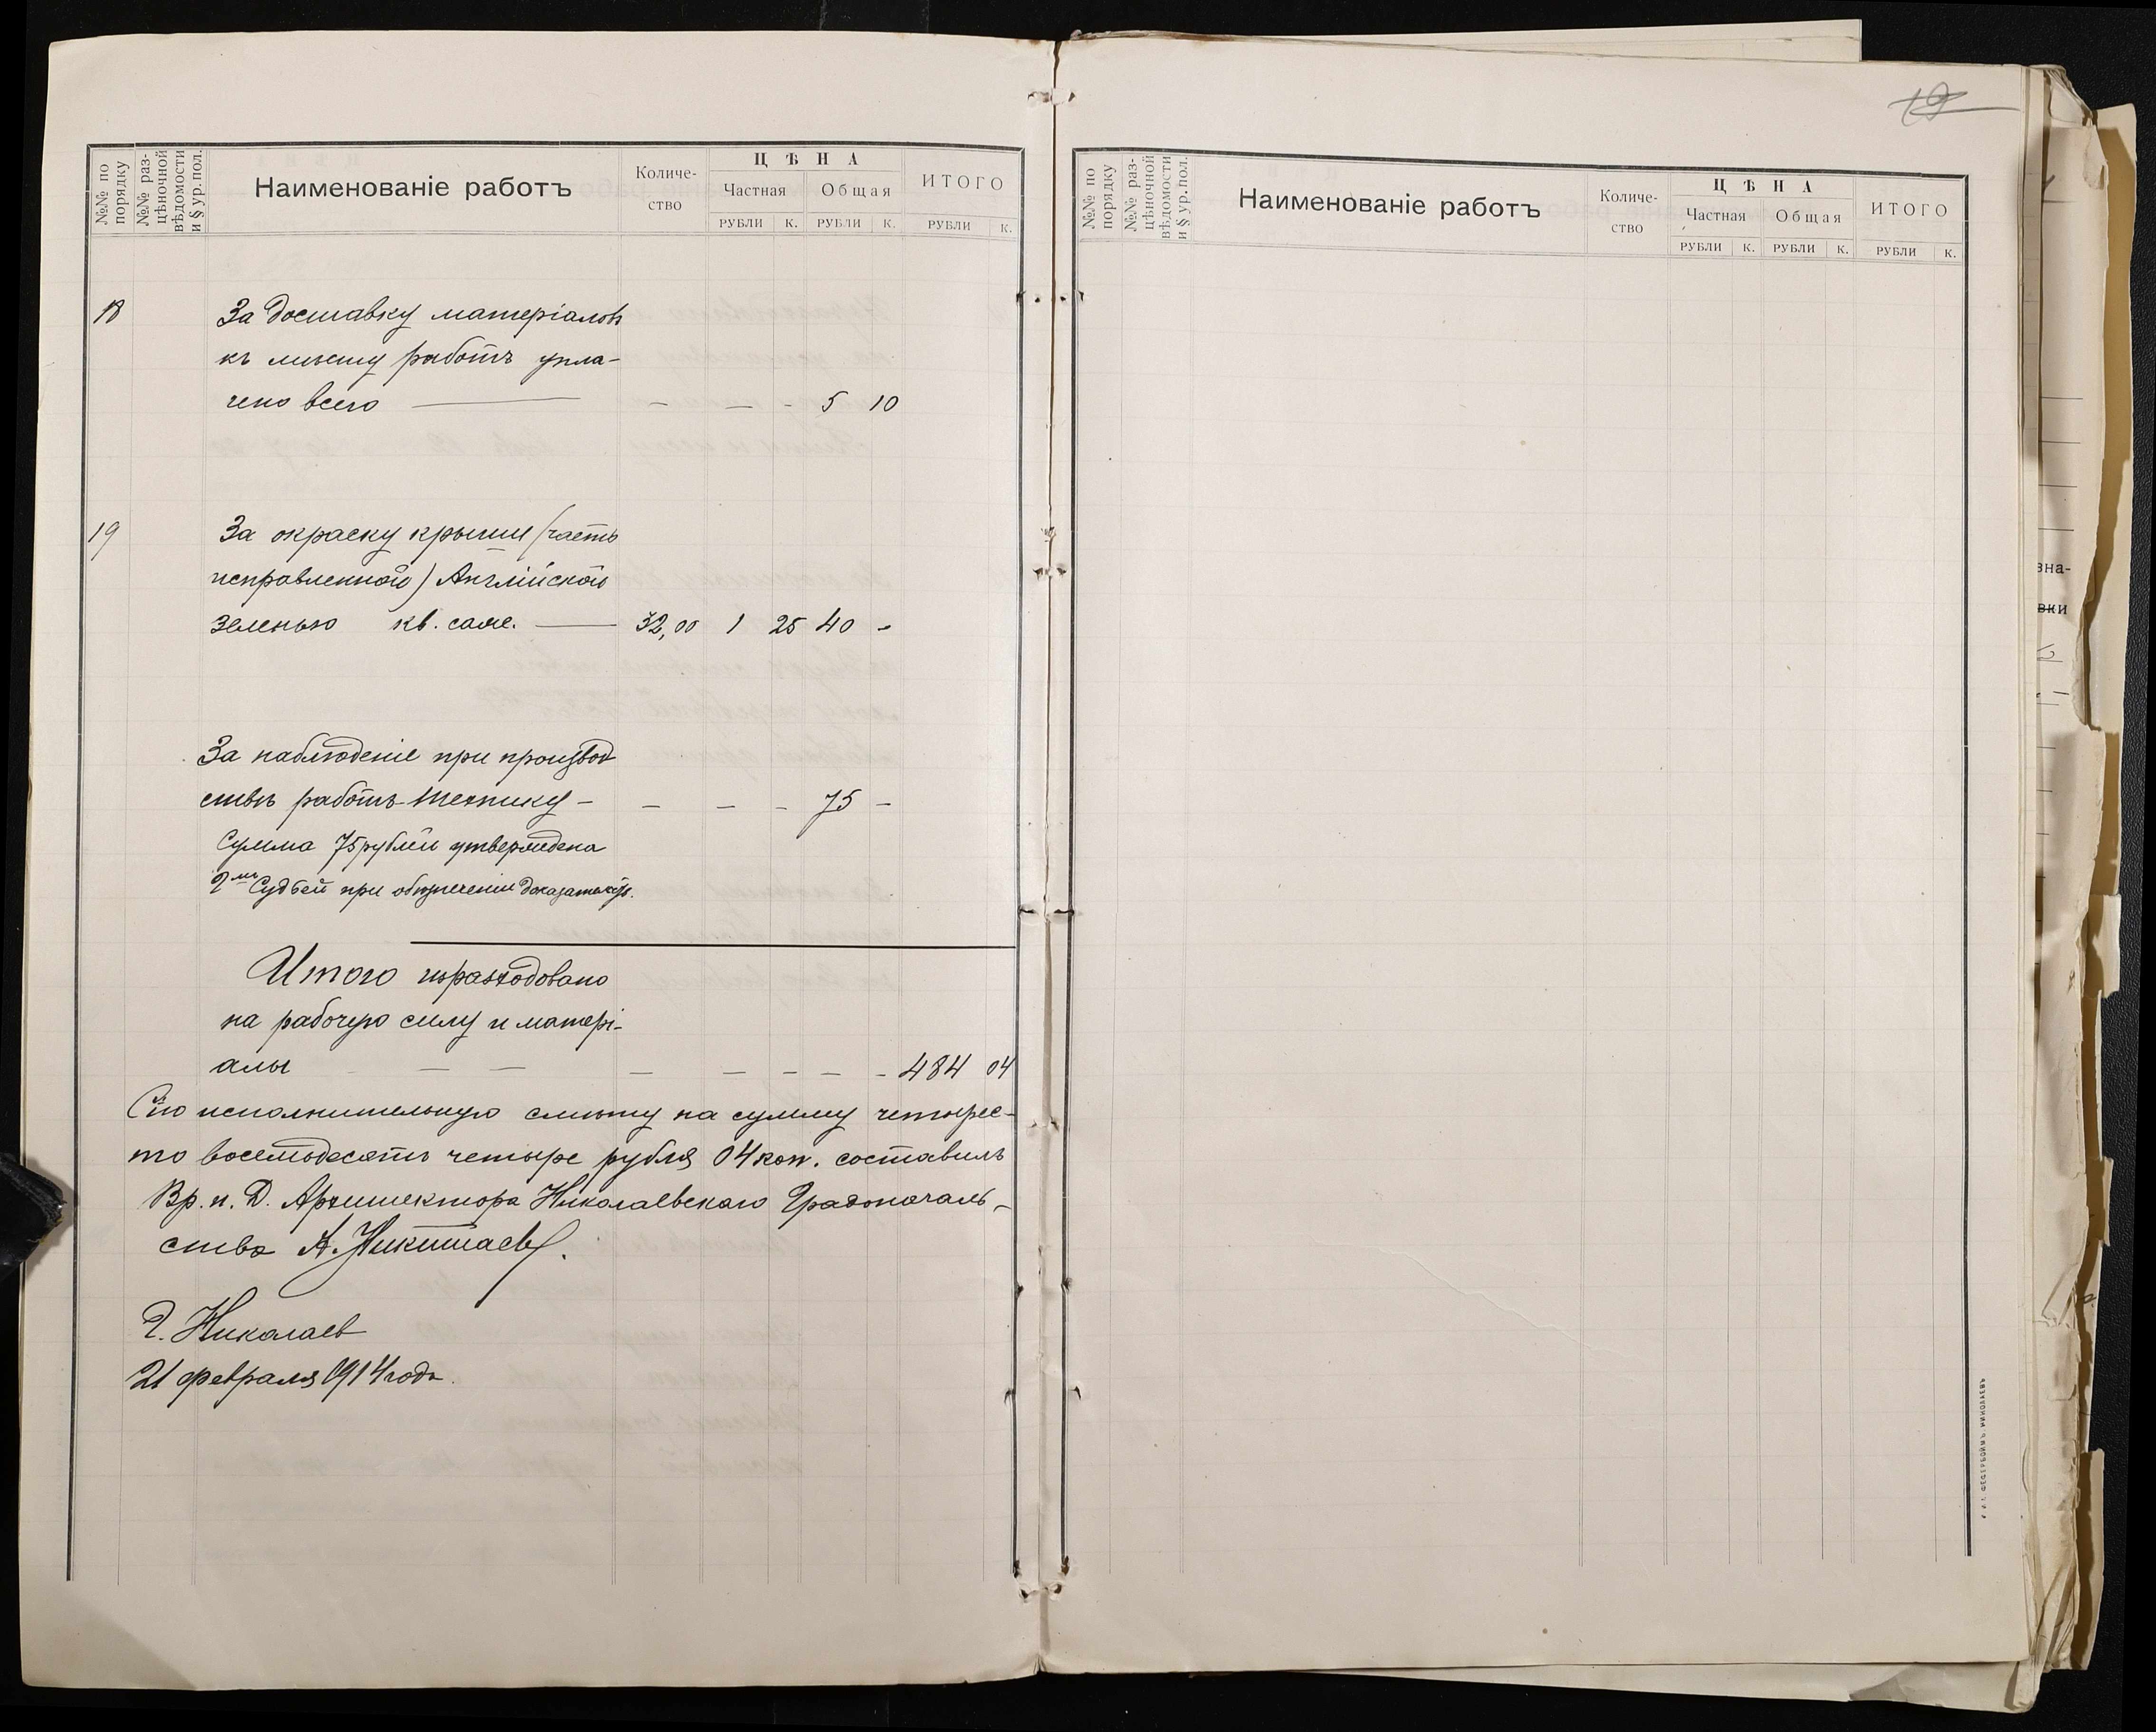 19
№№ по порядку
№№ раз-
цѣночной
вѣдомости
и § ур. пол.
Наименованіе работъ
Количе-
ство
ЦѢНА
Частная
Общая
ИТОГО
РУБЛИ К. РУБЛИ К. РУБЛИ К.
18 За доставку матеріаловъ
къ мѣсту работъ упла-
чено всего — — — - 5 10
19 За окраску крыши (часть
исправленной) Англійской
зеленью кв. саж. — 32,00 1 25 40 -
За наблюденіе при производ
ствѣ работъ технику - — — - 75 -
Сумма 75 рублей утверждена
Г.мъ Судьей при обезпеченіи доказательствъ.
Итого израсходовано
на рабочую силу и матері-
алы — — — — — — - 484 04
Сію исполнительную смѣту на сумму четырес-
то восемьдесятъ четыре рубля 04 коп. составилъ
Вр. и. д. Архитектора Николаевскаго Градоначаль-
ства А.
Г. Николаев
21 февраля 1914 года.
№№ по порядку
№№ раз-
цѣночной
вѣдомости
и § ур. пол.
Наименованіе работъ
Количе-
ство
ЦѢНА
Частная
Общая
ИТОГО
РУБЛИ К. РУБЛИ К. РУБЛИ К.
зна-
вки